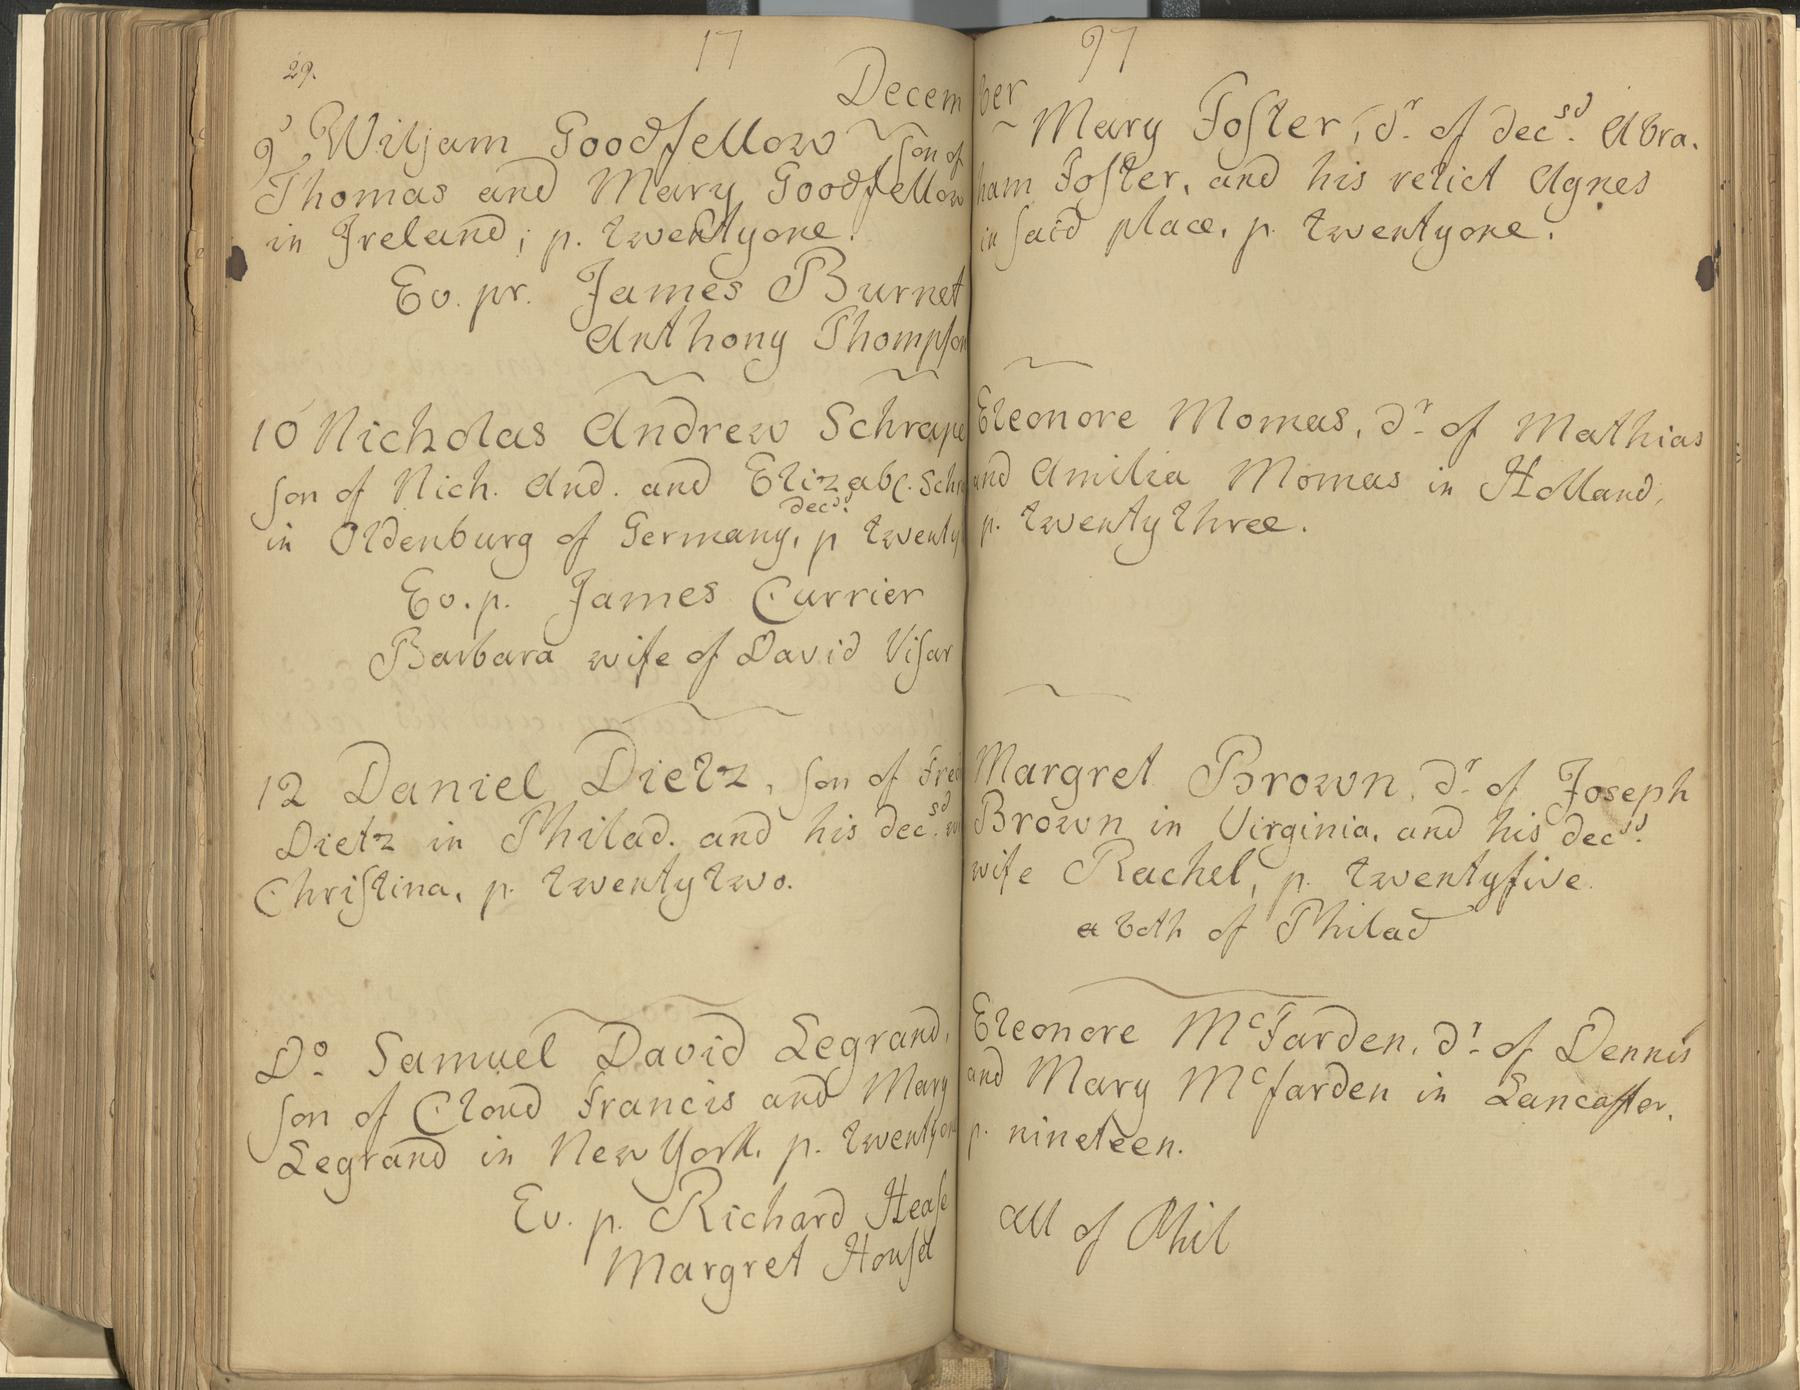 29.
17
Decem
9 Wiljam Goodfellow son of
Thomas and Mary Goodfellow
in Jreland; p. twentyone.
Ev. pr. James Burnet
Anthony Thompson
10 Nicholas Andrew Schrape
son of Nich. And. and Elizab. Schr
decd.
in Oldenburg of Germany, p twenty
Ev. p. James Currier
Barbara wife of David Visar
12 Daniel Dietz, son of Fred
Dietz in Philad. and his decsd. w
Christina, p. twentytwo.
Do Samuel David Legrand,
son of Cloud Francis and Mary
Legrand in New York. p. twentyone
Ev. p. Richard Hease
Margret Housel
97
ber
Mary Foster, dr. of decsd. Abra.
ham Foster, and his relict Agnes
in said place, p. twentyone.
Eleonore Momas, dr. of Mathias
and Amilia Momas in Holland,
p. twentythree.
Margret Brown, dr. of Joseph
Brown in Virginia, and his decsd.
wife Rachel, p. twentyfive.
a both of Philad
Eleonore McFarden, dr. of Dennis
and Mary Mcfarden in Lancaster,
p. nineteen.
All of Phil